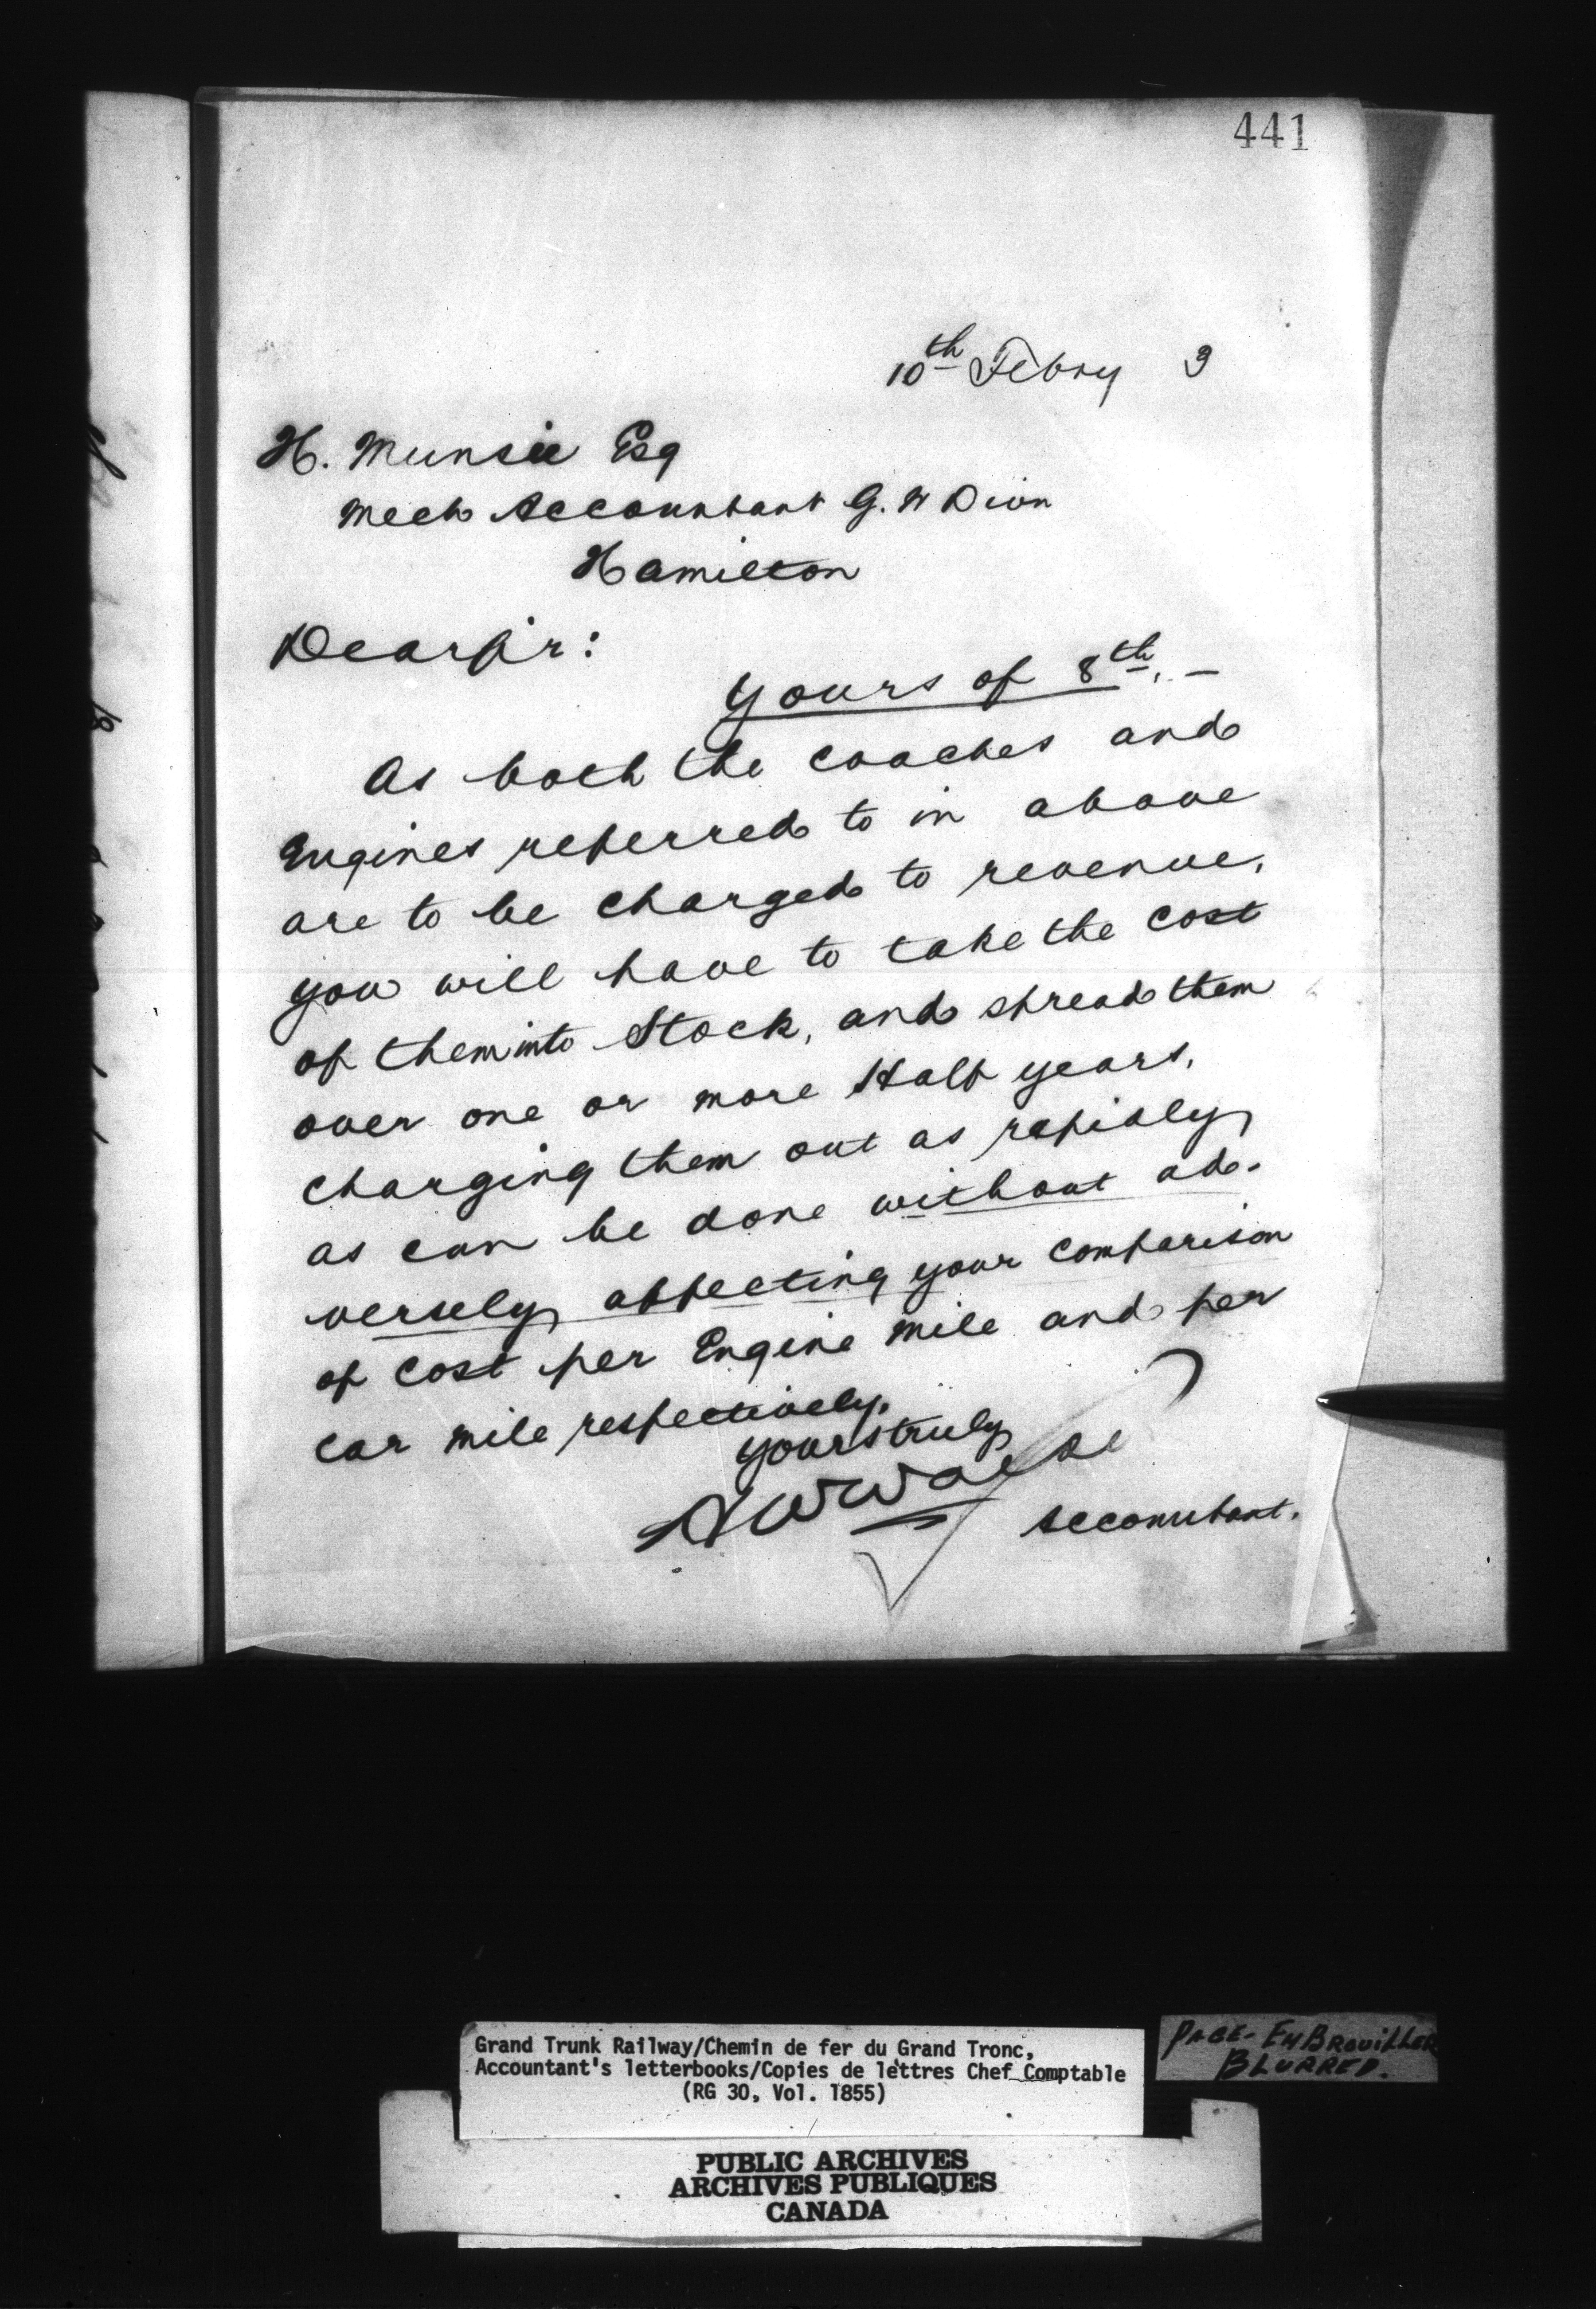 441
10th Febry 3
H. Munsie Esq
Mech Accountant G. W Divn
Hamilton
Dear Sir:
Yours of 8th. –
As both the coaches and
Engines referred to in above
are to be charged to revenue,
you will have to take the cost
of them into Stock, and spread them
over one or more Half years,
charging them out as rapidly
as can be done without ad-
versely affecting your comparison
of cost per Engine mile and per
car mile respectively.
Yours truly
Accountant.
Grand Trunk Railway/Chemin de fer du Grand Tronc,
Accountant's letterbooks/Copies de lettres Chef Comptable
(RG 30, Vol. 1855)
PAGE - EMBROUILLER
BLURRED.
PUBLIC ARCHIVES
ARCHIVES PUBLIQUES
CANADA